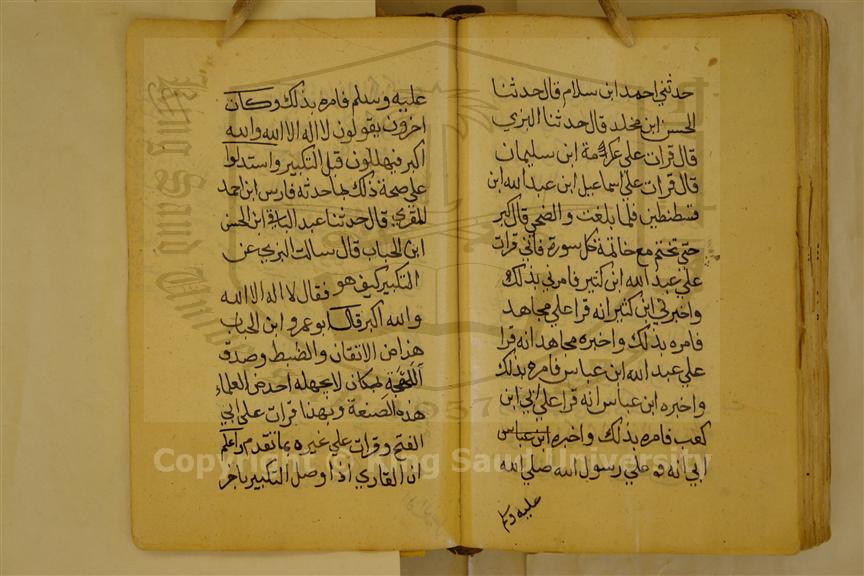 حدثني احمد ابن سلام قال حدثنا
الحسن ابن مخلد قال حدثنا البزي
قال قرات علي عكرمة ابن سليمان
قال قرات علي اسماعيل ابن عبد الله ابن
قسطنطين فلما بلغت والضحي قال كبر
حتي تختم مع خاتمة كل سورة فاني قرات
علي عبد الله ابن كثير فامرني بذلك
واخبرني ابن كثير انه قرا علي مجاهد
فامره بذلك واخبره مجاهد انه قرا
علي عبد الله ابن عباس فامره بذلك
واخبره ابن عباس انه قرا علي ابي ابن
كعب فامره بذلك واخبره ابن عباس
ابي انه علي رسول الله صلي الله
عليه وسلم
عليه وسلم فامره بذلك وكان
اخرون يقولون لا اله الا الله والله
اكبر فيهللون قبل التكبير واستدلوا
علي صحة ذلك بما حدثه فارس ابن احمد
المقري قال حدثنا عبد الباقي ابن الحسن
ابن الحباب قال سالت البزي عن
التكبير كيف هو فقال لا اله الا الله
والله اكبر قال ابو عمرو ابن الحباب
هذا من الاتقان والضبط وصدق
اللهجة بمكان لا يجهله احد من العلماء
هذه الصنعة وبهذا قرات علي ابي
الفتح وقرات علي غيره بما تقدم اعلم
ان القاري اذا وصل التكبير باخر
Copyright © King Saud University
King Saud University
1957